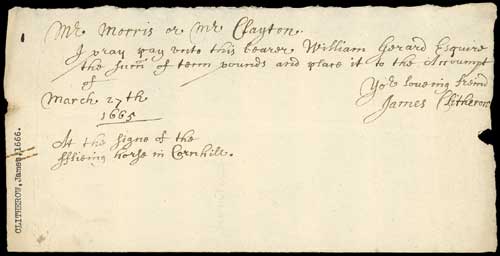 Mr Morris or Mr Clayton.
I pray pay unto this bearer William Gerard Esquire
the sum of tenn pounds and place it to the Accoumpt
of
Yor loveing freind
March 27th
James Clitherow
1665
At the signe of the
fflieing horse in Cornhill.
CLITHEROW, James, 1666.